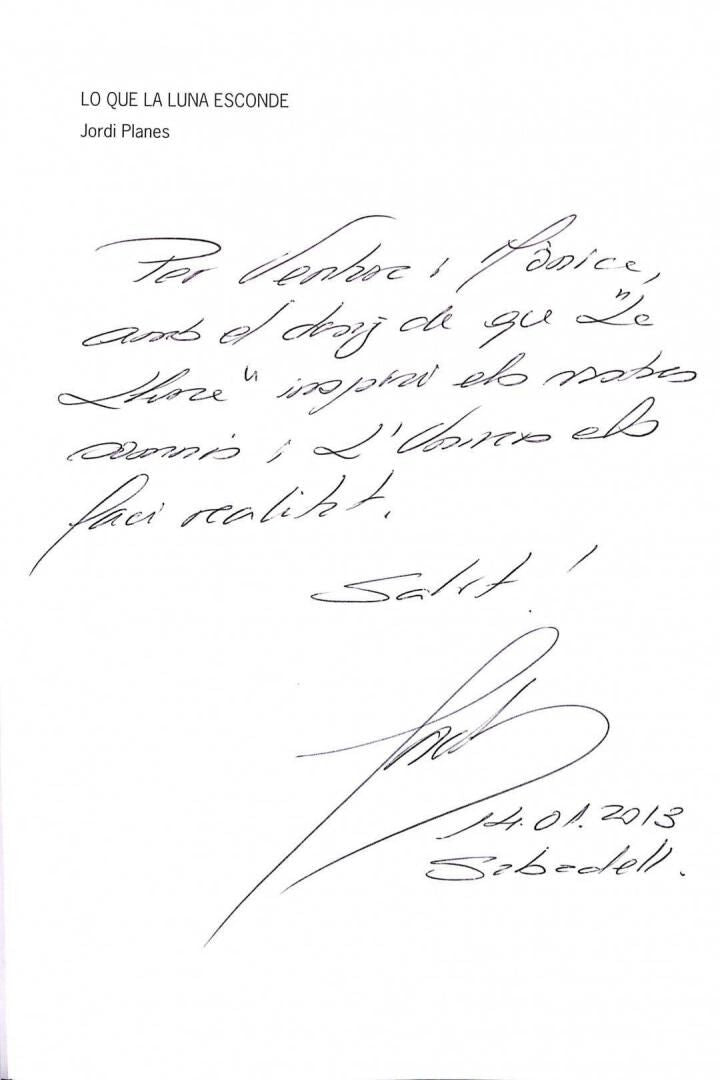 LO QUE LA LUNA ESCONDE
Jordi Planes
Per Ventura i Mònica,
amb el desig de que "La
Lluna" inspiri els vostres
somnis i L'Univers els
faci realitat.
Salut!
Jordi
14.01.2013
Sabadell.